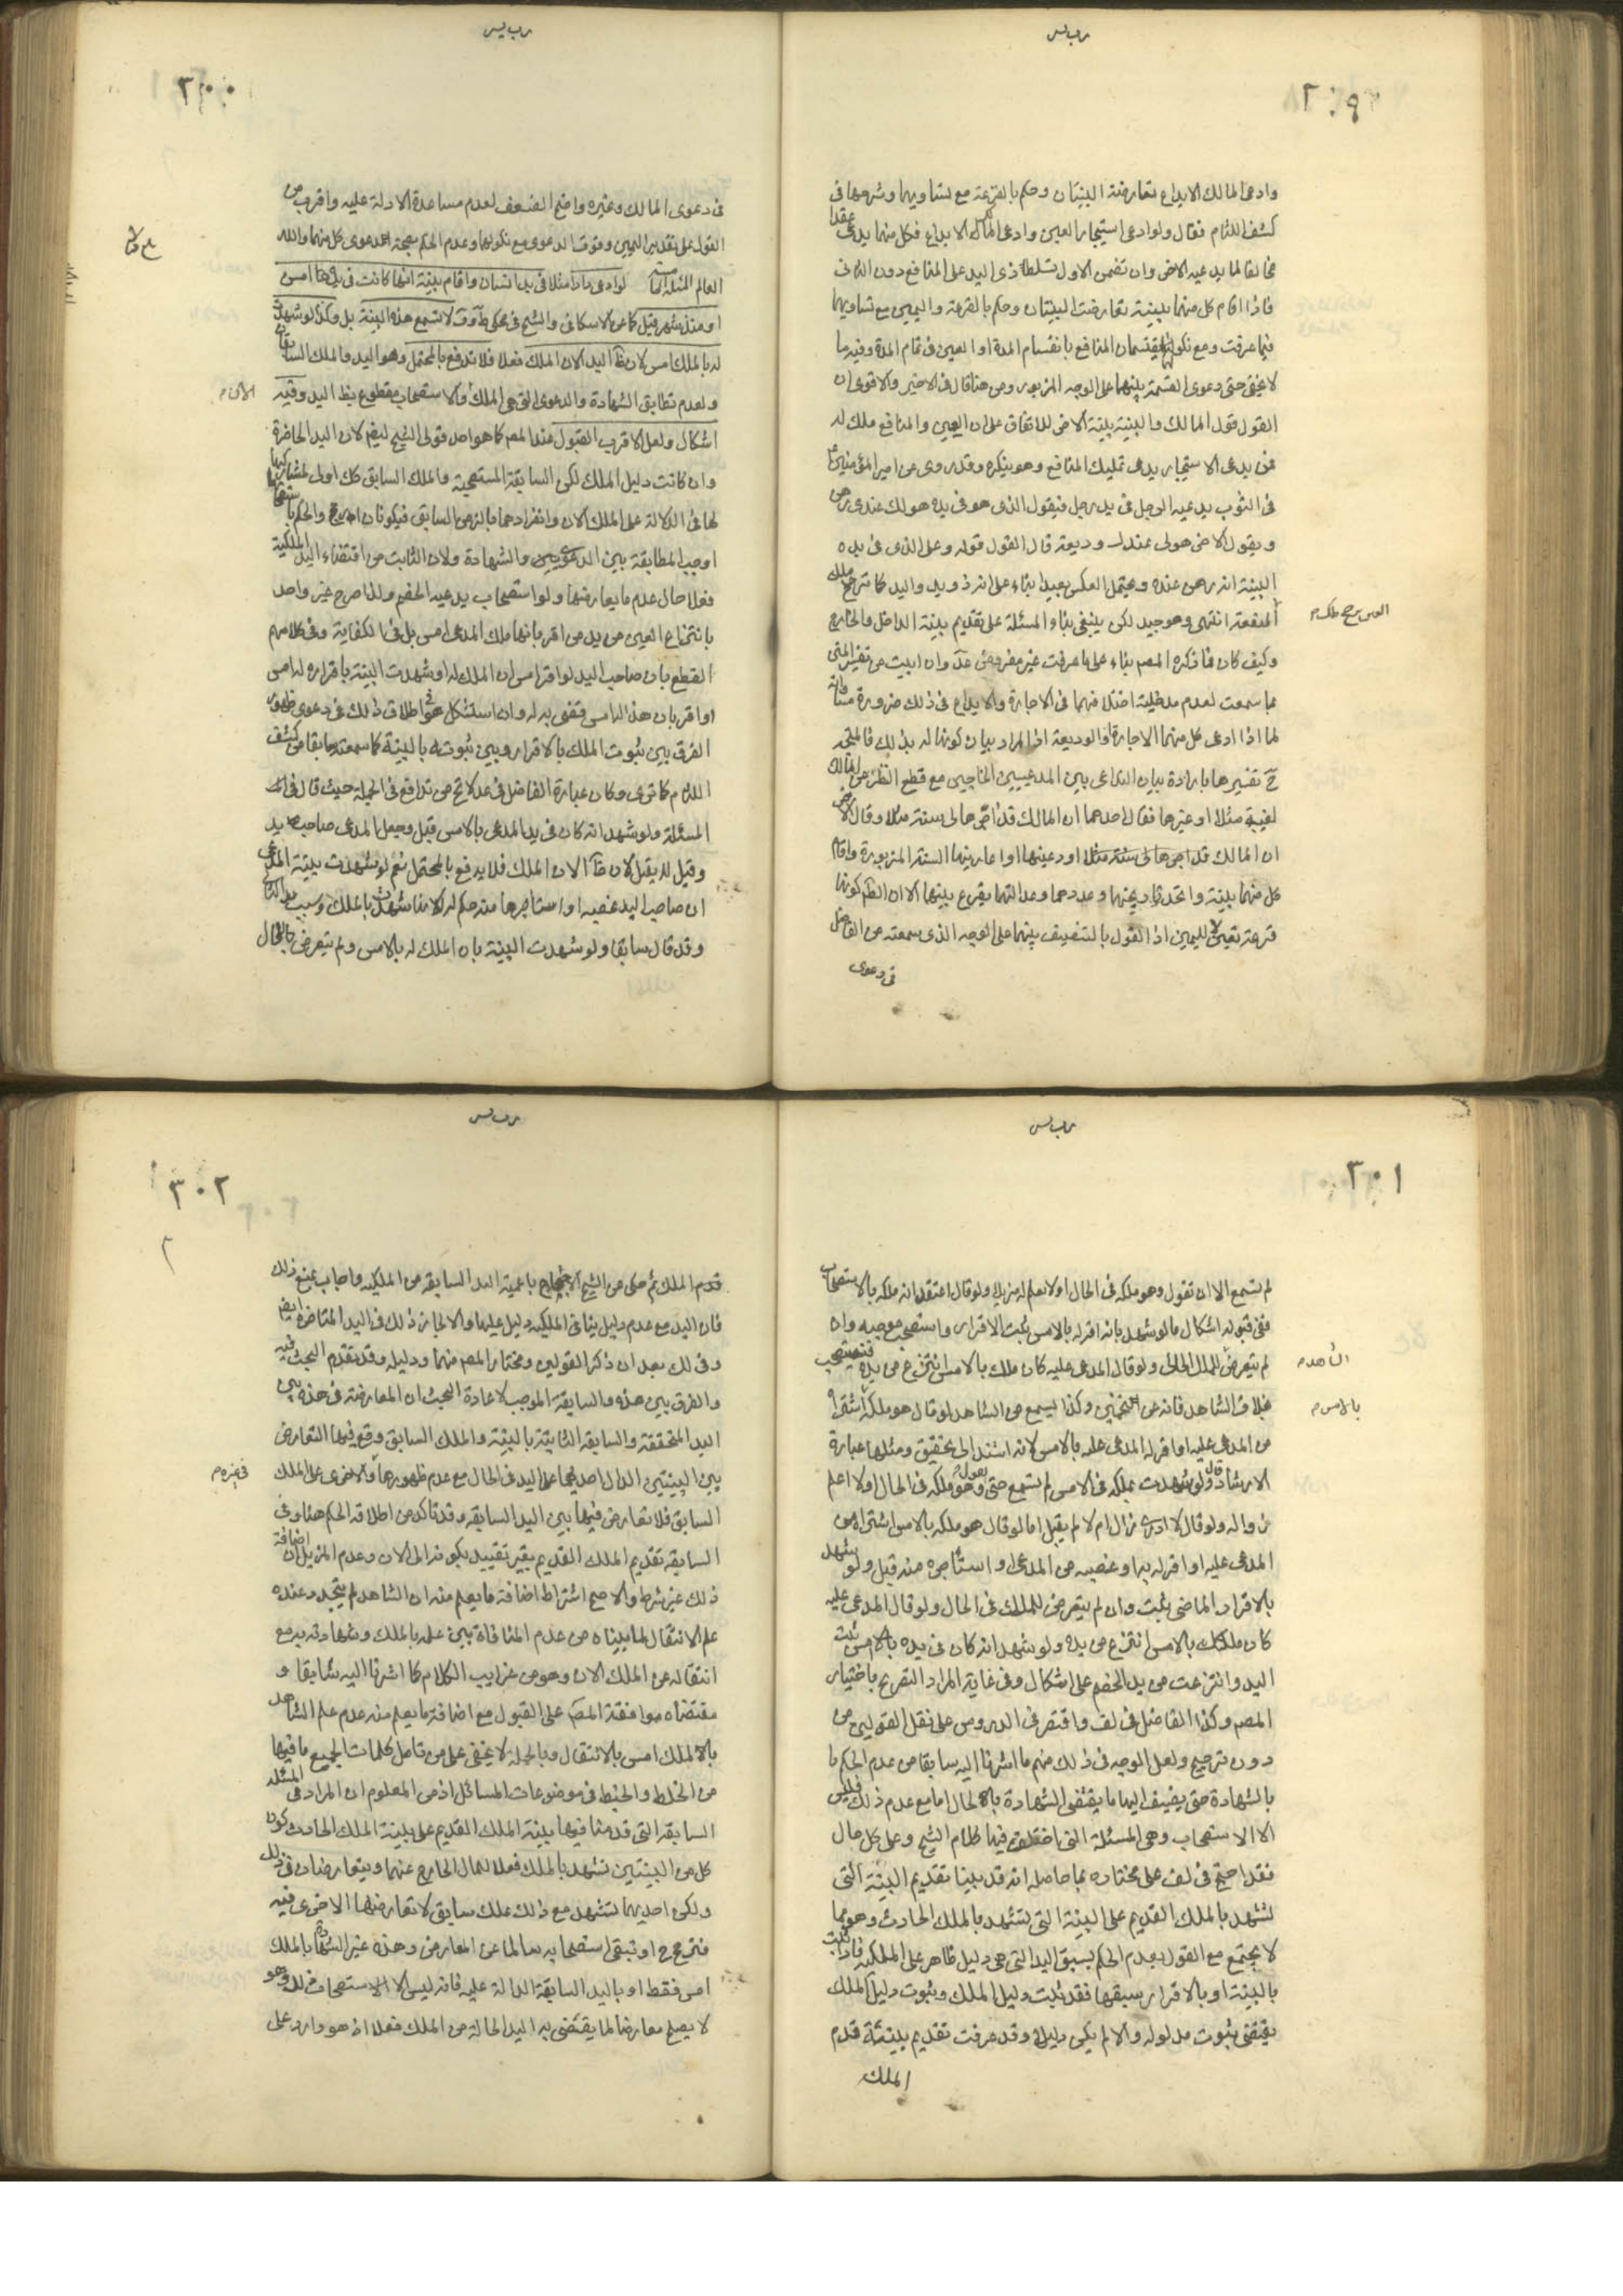 ٢٩٩
وادعى المالك الايداع تعارضت البينتان وحكم بالقرعة مع تساويهما وشرحها في
كشف اللثام فقال ولو ادعى استيجار العين وادعى المالك الايداع فكل منهما يدعى عقدا
مخالفا لما يدعيه الاخر وان تضمن الاول تسلط ذى اليد على المنافع دون الثانى
فاذا اقام كل منهما بينة تعارضت البينتان وحكم بالقرعة واليمين مع تساويهما
فيما عرفت ومع نكولهما يقتسمان المنافع بانقسام المدة او العين في تمام المدة وفيه ما
لا يخفى حتى دعوى القسمة بينهما على الوجه المزبور ومن هنا قال في الاخير والاقوى ان
القول قول المالك والبينة بينة الاخر للاتفاق على ان العين والمنافع ملك له
فمن يدعى الاستيجار يدعى تمليك المنافع وهو ينكره وقد روى عن امير المؤمنين ع
في الثوب يدعيه الرجل في يد رجل فيقول الذى هو في يده هو لك عندى رهن
ويقول الاخر هو لى عندك وديعة قال القول قوله وعلى الذى في يده
البينة انه رهن عنده ويحتمل العكس بعيدا بناء على انه ذو يد واليد كما ترجح ملك
المنفعة انتهى وهو جيد لكن ينبغى بناء المسئلة على تقديم بينة الداخل والخارج
العين ترجح ملك م
وكيف كان فما ذكره المصم بناء على ما عرفت غير مفروض عد وان ابيت عن تفسير المتن
بما سمعت لعدم مدخلية اختلافهما في الاجارة والايداع في ذلك ضرورة مساواته
لما اذا ادعى كل منهما الاجارة او الوديعة اذ المراد بيان كونها له بذلك فالمتجه
ح تفسيرها بارادة بيان التداعى بين المدعيين الخارجين مع قطع النظر عن المالك
لغيبة مثلا او غيرها فقال احدهما ان المالك قد اجرها لى سنة مثلا وقال الاخر
ان المالك قد اجرها لى سنة مثلا او دعينها او اعارينها السنة المزبورة واقام
كل منهما بينة واتحد تاريخهما وعددهما وعدالتهما يقرع بينهما الا ان الظم كونها
قرعة تعيين لليمين اذ القول بالتنصيف بينهما على الوجه الذى سمعته من الفاضل
في دعوى
٣٠٠
في دعوى المالك وغيره واضح الضعف لعدم مساعدة الادلة عليه واقرب من
القول على تقدير اليمين وقوف الدعوى مع نكولهما وعدم الحكم بصحة احد دعوى كل منهما والله
العالم المسئلة لو ادعى دارا مثلا في يد انسان واقام بينة انها كانت في يده امس
او منذ شهر قيل كما عن الاسكافى والشيخ في محكى ط وف لا تسمع هذه البينة بل وكذا لو شهدت
له بالملك امس لان ظ اليد الان الملك فعلا فلا تدفع بالمحتمل وهو اليد والملك السابقان
ولعدم تطابق الشهادة والدعوى التى هى الملك والاستصحاب مقطوع بظ اليد وفيه
الان م
اشكال ولعل الاقرب القبول عند المصم كما هو احد قولى الشيخ ايضم لان اليد الحاضرة
وان كانت دليل الملك لكن السابقة المستصحبة والملك السابق كك اولى لمشاركتهما
لها في الدلالة على الملك الان وانفرادهما بالزمن السابق فيكونان ارجح والحكم باستصحابهما
اوجب المطابقة بين الدعويين والشهادة ولان الثابت من اقتضاء اليد الملكية
فعلا حال عدم ما يعارضها ولو استصحاب يدعيه الخصم ولذا صرح غير واحد
بانتزاع العين من يد من اقر بانها ملك المدعى امس بل في الكفاية وفي كلامهم
القطع بان صاحب اليد لو اقر امس ان الملك له او شهدت البينة باقراره له امس
او اقر بان هذا له امس قضى به له وان استشكل هو اطلاق ذلك في دعوى ظهور
الفرق بين ثبوت الملك بالاقرار وبين ثبوته بالبينة كما سمعته سابقا من كشف
اللثام كما ترى وكان عبارة الفاضل في عد لا تخ من تدافع في الجملة حيث قال في اثناء
المسئلة ولو شهد انه كان في يد المدعى بالامس قبل وجعل المدعى صاحب يد
وقيل لا يقبل لان ظ الان الملك فلا يدفع بالمحتمل نعم لو شهدت بينة المدعى
ان صاحب اليد غصبه او استاجرها منه حكم له لانها شهدت بالملك وسبب يد الثانى
وقد قال سابقا ولو شهدت البينة بان الملك له بالامس ولم يتعرض للحال
٣٠١
لم تسمع الا ان تقول وهو ملكه في الحال او لا يعلم له مزيلا ولو قال اعتقد انه ملكه بالاستصحاب
ففى قبوله اشكال ما لو شهد بانه اقر له بالامس ثبت الاقرار واستصحب موجبه وان
لم يتعرض للملك الحالى ولو قال المدعى عليه كان ملك بالامس انتزع من يده فيستصحب
الشاهد م
بخلاف الشاهد فانه عن تخمين وكذا يسمع من الشاهد لو قال هو ملكه اشتراه
بالامس م
من المدعى عليه او اقر له المدعى عليه بالامس لانه استند الى تحقيق ومثلها عبارة
الارشاد قال ولو شهدت بملكه في الامس لم تسمع حتى يقول وهو ملكه في الحال او لا اعلم
زواله ولو قال لا ادرى زال ام لا لم يقبل اما لو قال هو ملكه بالامس اشتراه من
المدعى عليه او اقر له به او غصبه من المدعى او استاجره منه قبل ولو شهد
بالاقرار الماضى ثبت وان لم يتعرض للملك في الحال ولو قال المدعى عليه
كان ملكك بالامس انتزع من يده ولو شهد انه كان في يده بالامس ثبت
اليد وانتزعت من يد الخصم على اشكال وفي غاية المراد التصريح باختيار
المصم وكذا الفاضل في لف واقتصر في الدروس على نقل القولين من
دون ترجيح ولعل الوجه في ذلك منهم ما اشرنا اليه سابقا من عدم الحكم
بالشهادة حتى يضيف اليها ما يقتضى الشهادة بالحال اما مع عدم ذلك فليس
الا الاستصحاب وهى المسئلة التى اختلف فيها كلام الشيخ وعلى كل حال
فقد احتج في لف على مختاره بما حاصله انه قد بينا تقديم البينة التى
تشهد بالملك القديم على البينة التى تشهد بالملك الحادث وهو مما
لا يجتمع مع القول بعدم الحكم بسبق اليد التى هى دليل ظاهر على الملكية فاذا ثبت
بالبينة او بالاقرار سبقها فقد ثبت دليل الملك وثبوت دليل الملك
يقتضى ثبوت مدلوله والا لم يكن دليلا وقد عرفت تقديم بينة قدم
الملك
٣٠٢
قدم الملك ثم حكى عن الشيخ الاحتجاج باعمية اليد السابقة من الملكية واجاب بمنع ذلك
فان اليد مع عدم دليل ينافى الملكية دليل عليها والا لجاز ذلك في اليد المتاخرة ايضم
وفي لك بعد ان ذكر القولين ومختار المصم منهما ودليله وقد تقدم البحث فيه
والفرق بين هذه والسابقة الموجب لاعادة البحث ان المعارضة في هذه بين
اليد المتحققة والسابقة الثابتة بالبينة والملك السابق وقع فيها التعارض
بين البينتين الدال احديهما على اليد في الحال مع عدم ظهورها والاخرى على الملك
في غيره م
السابق فلا تعارض فيها بين اليد السابقة وقد تاكد من اطلاقه الحكم هنا وفي
السابقة تقديم الملك القديم بغير تقييد بكونه الى الان وعدم المزيل ان اضافة
ذلك غير شرط والاصح اشتراط اضافة ما يعلم منه ان الشاهد لم يتجدد عنده
علم الانتقال لما بيناه من عدم المنافاة بين علمه بالملك وشهادته به مع
انتقاله عن الملك الان وهو من غرايب الكلام كما اشرنا اليه سابقا و
مقتضاه موافقة المصم على القبول مع اضافة ما يعلم منه عدم علم الشاهد
بالملك امس بالانتقال وبالجملة لا يخفى على من تامل كلمات الجميع ما فيها
من الخلط والخبط في موضوعات المسائل اذ من المعلوم ان المراد في المسئلة
السابقة التى قدمنا فيها بينة الملك القديم على بينة الملك الحادث كون
كل من البينتين تشهد بالملك فعلا للمال الخارج عنهما ويتعارضان في ذلك
ولكن احديهما تشهد مع ذلك بملك سابق لا تعارضها الاخرى فيه
فترجح ح او تبقى استصحابه سالما عن المعارض وهذه غير الشهادة بالملك
امس فقط او باليد السابقة الدالة عليه فانه ليس الا الاستصحاب فرد وهو
لا يصلح معارضا لما يقتضى به اليد الحالة من الملك فعلا اذ هو وارد على